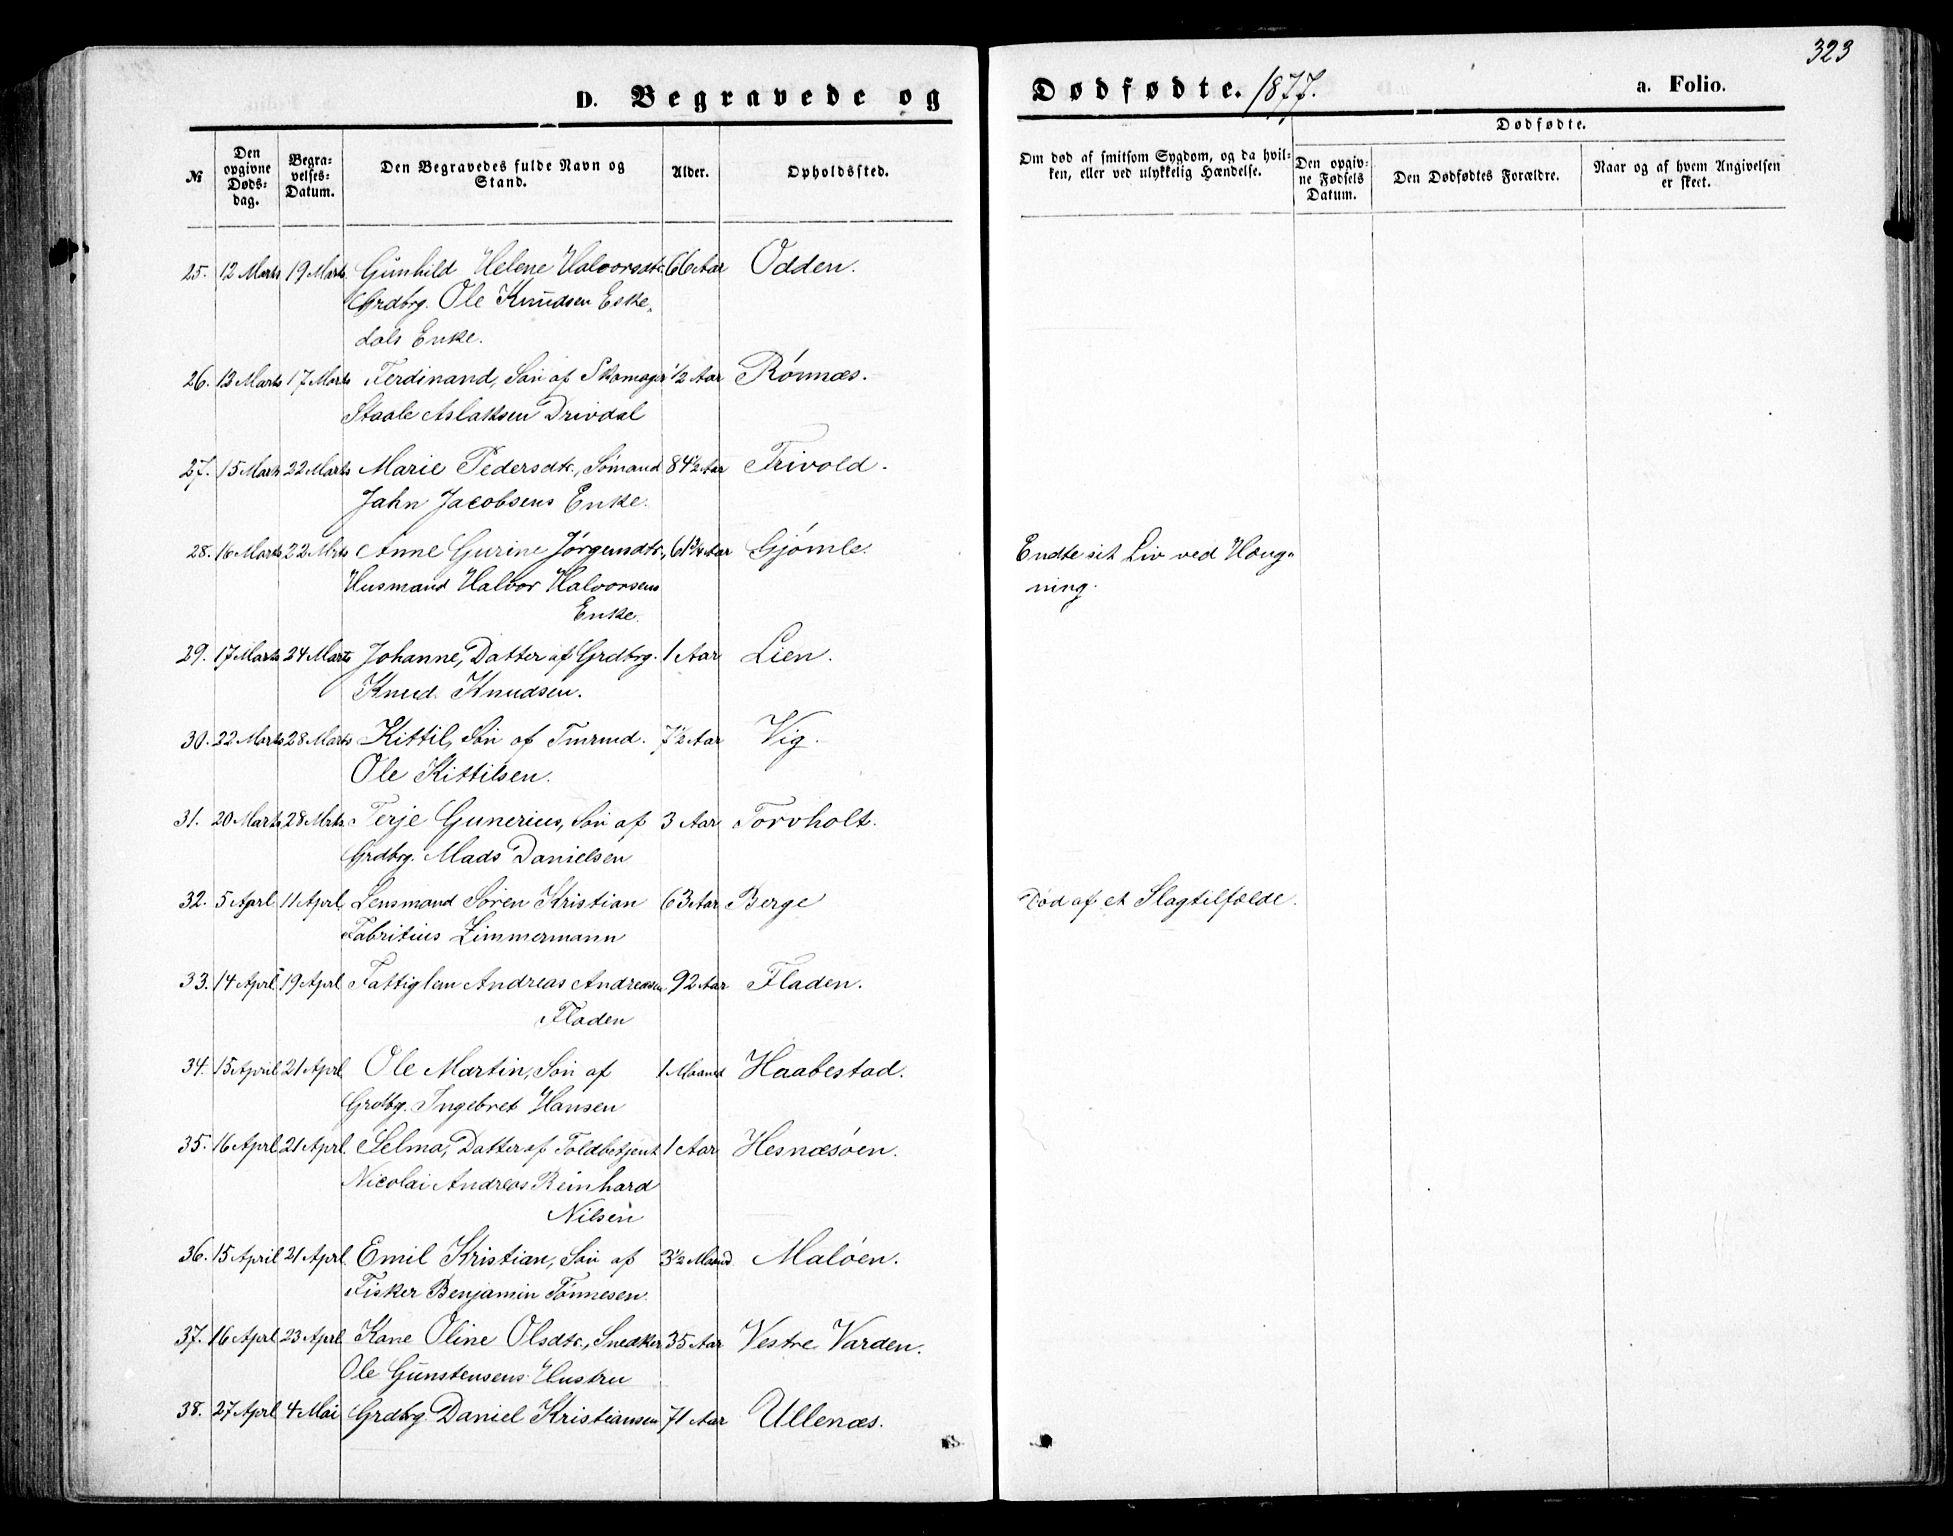 323
D. Begravede og Dødfødte. 1877. a. Folio.
Dødfødte.
№ Den opgivne Døds-dag. Begra-velses-Datum. Den Begravedes fulde Navn og Stand. Alder. Opholdsted. Om død af smitsom Sygdom, og da hvil-ken, eller ved ulykkelig Hændelse. Den opgiv-ne Fødsels Datum. Den Dødfødtes Forældre. Naar og af hvem Angivelsen er skeet.
25. 12 Marts 19 Marts Gunhild Helene Halvorsdtr. 66 Aar Odden.
Grdbrg. Ole Knudsen Eske-
dals Enke.
26. 13 Marts 17 Marts Ferdinand, Søn af Skomager 1/2 Aar Rønnæs.
Staale Aslaksen Drivdal
27. 15 Marts 22 Marts Marie Pedersdtr., Sømand 84 1/2 Aar Trivold.
Jahn Jacobsens Enke.
28. 16 Marts 22 Mrts Anne Gurine Jørgensdtr., 61 3/4 Aar Gjømle. Endte sit Liv ved Hæng-
Husmand Halvor Halvorsens ning.
Enke.
29. 17 Marts 24 Marts Johanne, Datter af Grdbrg. 1 Aar Lien.
Knud Knudsen.
30. 22 Marts 28 Marts Kittil, Søn af Tmrmd. 7 1/2 Aar Vig.
Ole Kittilsen.
31. 20 Marts 28 Mrts. Terje Gunerius, Søn af 3 Aar Torvholt.
Grdbrg. Mads Danielsen
32. 5 Aprl 11 Aprl. Lensmand Søren Kristian 63 Aar Berge Død af et Slagtilfælde.
Fabritius Zimmermann
33. 14 Aprl 19 Aprl Fattiglem Andreas Andreasen 92 Aar Fladen.
Fladen
34. 15 April 21 Aprl. Ole Martin, Søn af 1 Maaned Haabestad.
Grdbrg. Ingebret Hansen
35. 16 Aprl 21 Aprl. Selma, Datter af Toldbetjent 1 Aar Hesnæsøen.
Nicolai Andreas Reinhard
Nilsen
36. 15 April 21 Aprl. Emil Kristian, Søn af 3 1/2 Maand Maløen.
Fisker Benjamin Tønnesen.
37. 16 Aprl 23 Aprl. Kone Oline Olsdtr., Snedker 35 Aar Vestre Varden.
Ole Gunstensens Hustru
38. 27 Aprl 4 Mai Grdbrg Daniel Kristiansen 71 Aar Ullenæs.